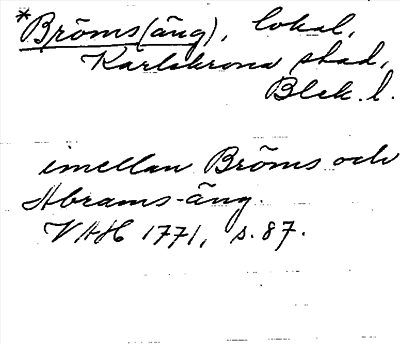 *Bröms(äng), lokal,
Karlskrona stad,
Blek. l.
imellan Bröms och
Abrams-äng.
VAH 1771, s. 87.